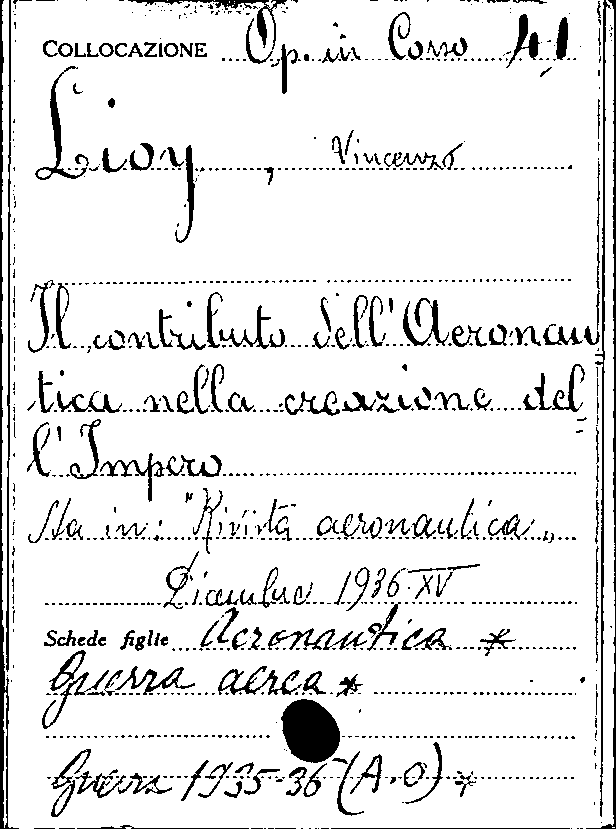 COLLOCAZIONE Op. in Corso 41
Lioy, Vincenzo
Il contributo dell'Aeronau=
tica nella creazione del=
l'Impero
Sta in: "Rivista aeronautica"
Dicembre 1936-XV
Schede figlie Aeronautica *
Guerra aerea *
Guerra 1935-36 (A.O) *